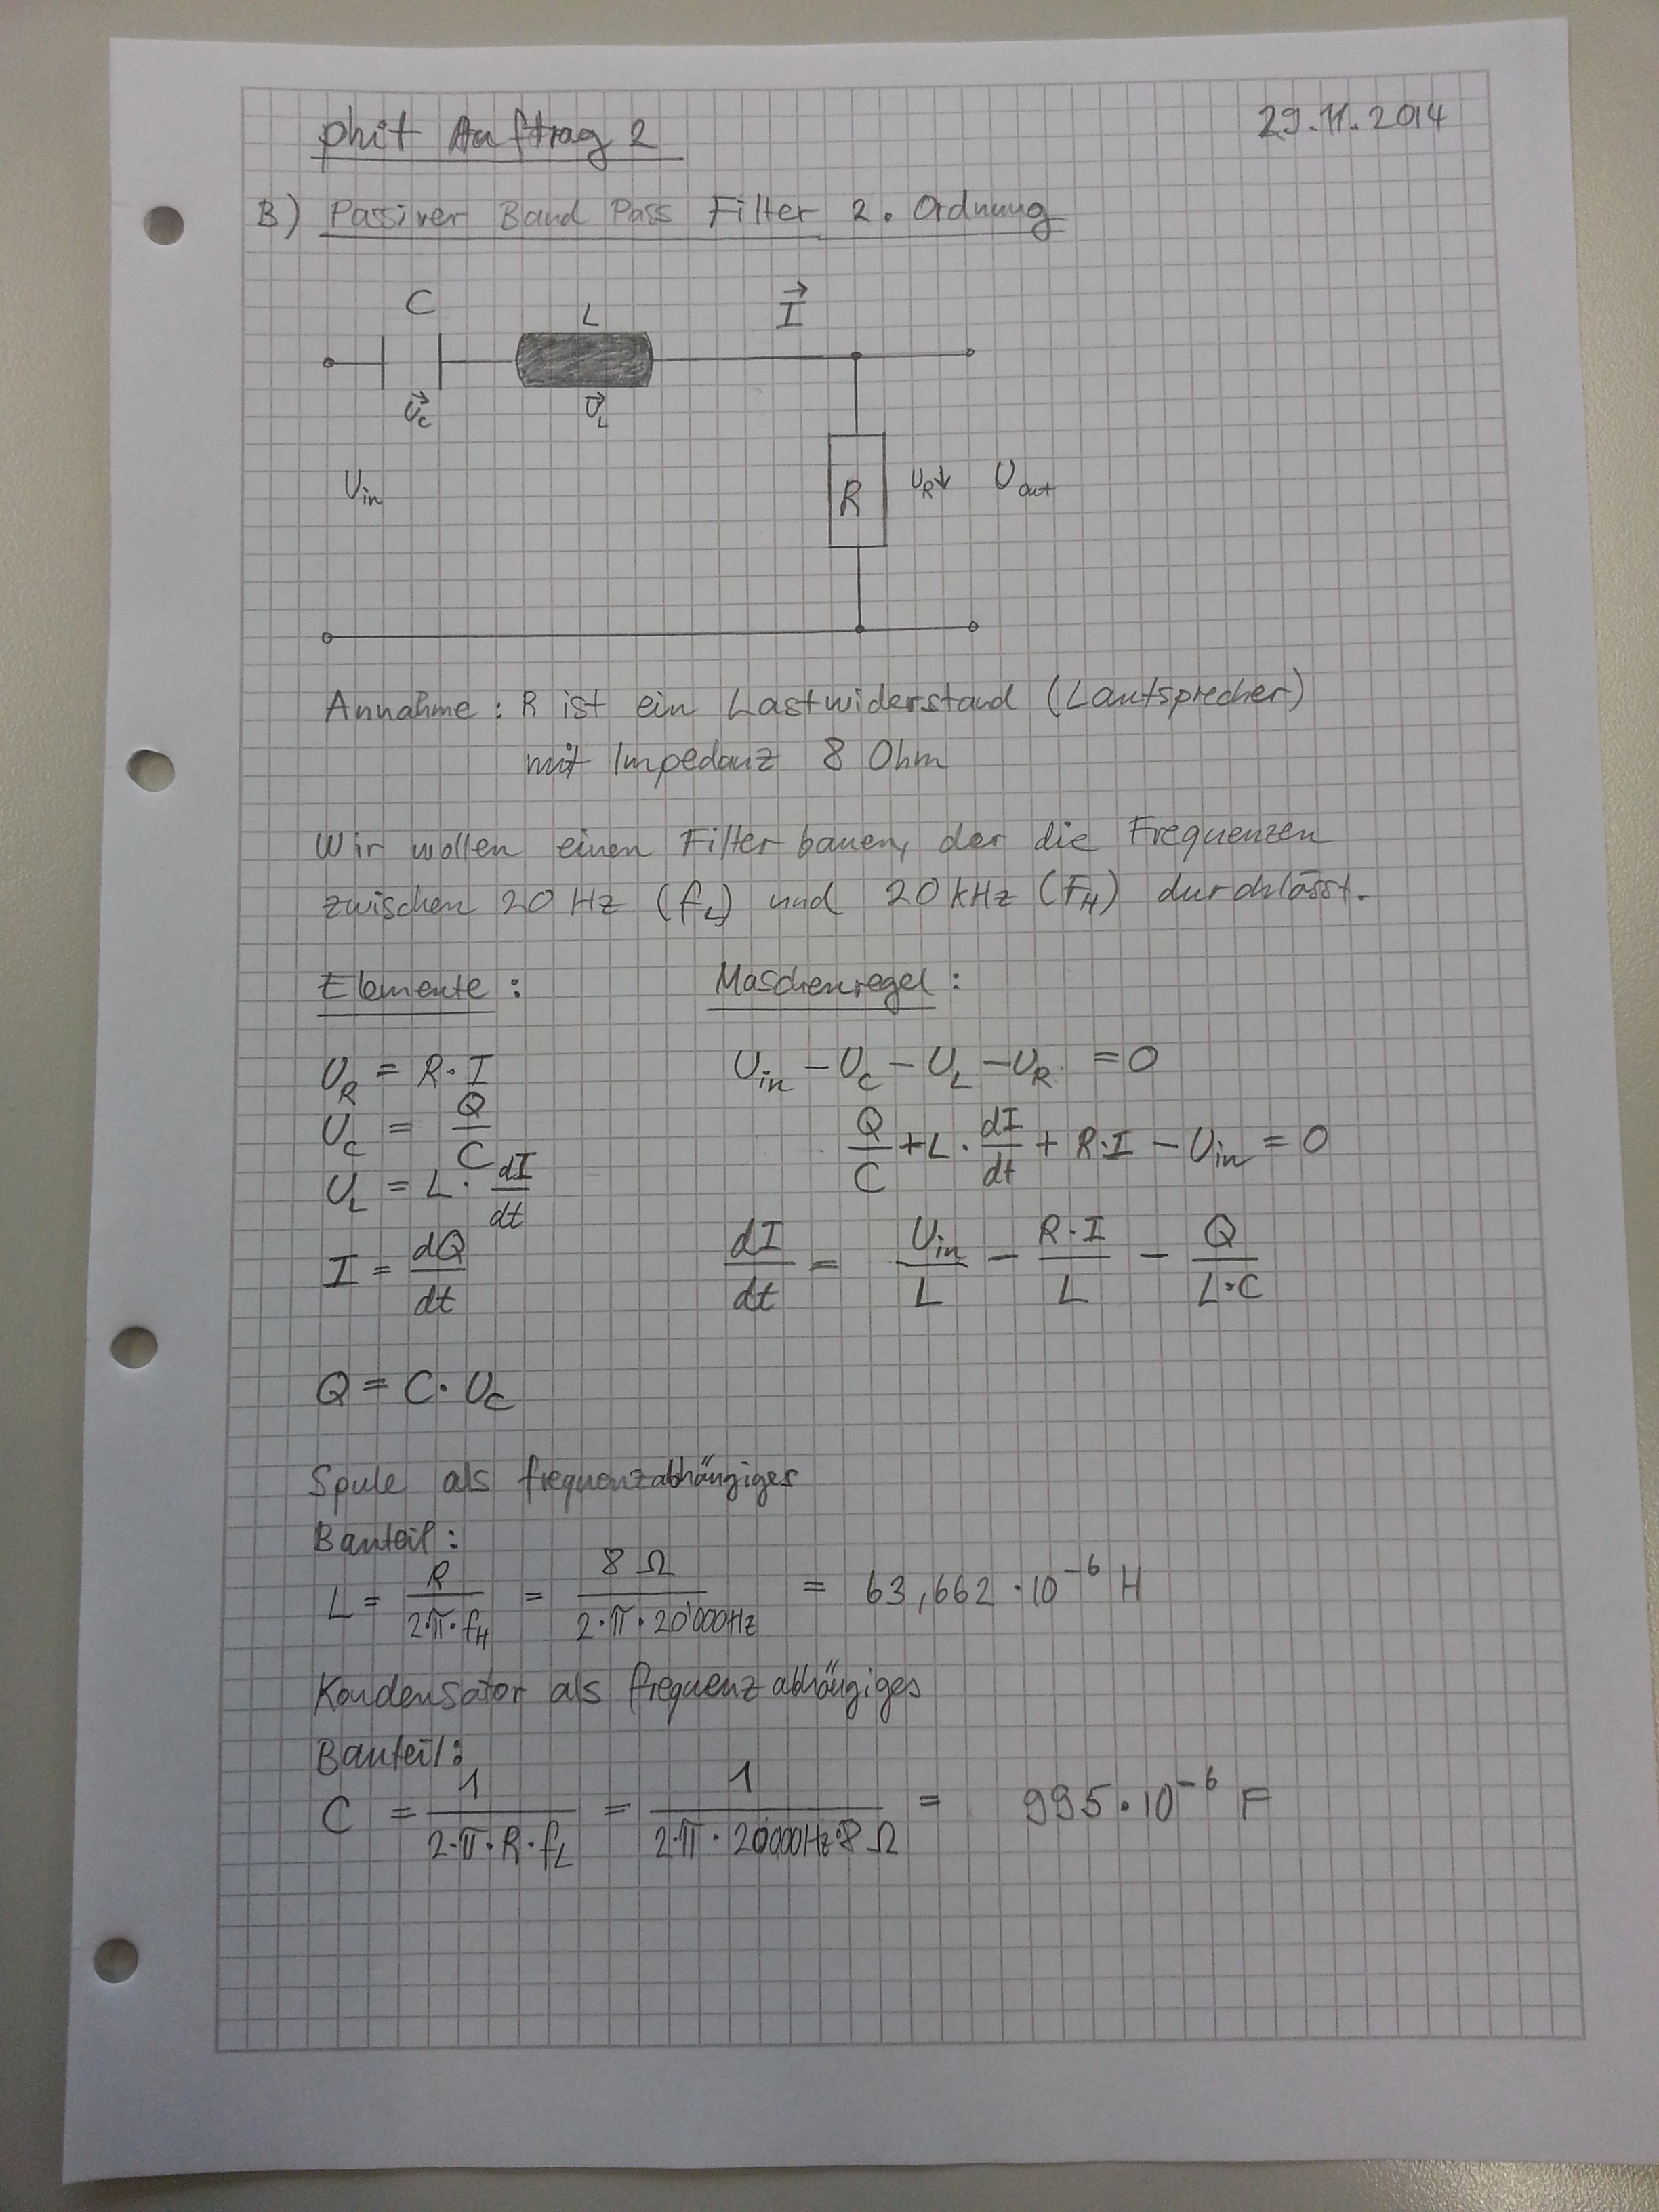 phit Auftrag 2
29.11.2014
B) Passiver Band Pass Filter 2. Ordnung
C
L
I⃗
U⃗_C
U⃗_L
U_in
R
U_R↓
U_out
Annahme: R ist ein Lastwiderstand (Lautsprecher)
mit Impedanz 8 Ohm
Wir wollen einen Filter bauen, der die Frequenzen
zwischen 20 Hz (f_L) und 20 kHz (F_H) durchlässt.
Elemente:
U_R = R · I
U_C = Q/C
U_L = L · dI/dt
I = dQ/dt
Q = C · U_C
Maschenregel:
U_in − U_C − U_L − U_R = 0
Q/C + L · dI/dt + R·I − U_in = 0
dI/dt = U_in/L − R·I/L − Q/L·C
Spule als frequenzabhängiges
Bauteil:
L = R/2·π·f_H = 8 Ω/2·π·20'000Hz = 63,662 · 10^-6 H
Kondensator als frequenzabhängiges
Bauteil:
C = 1/2·π·R·f_L = 1/2·π·20'000Hz·8 Ω = 995 · 10^-6 F